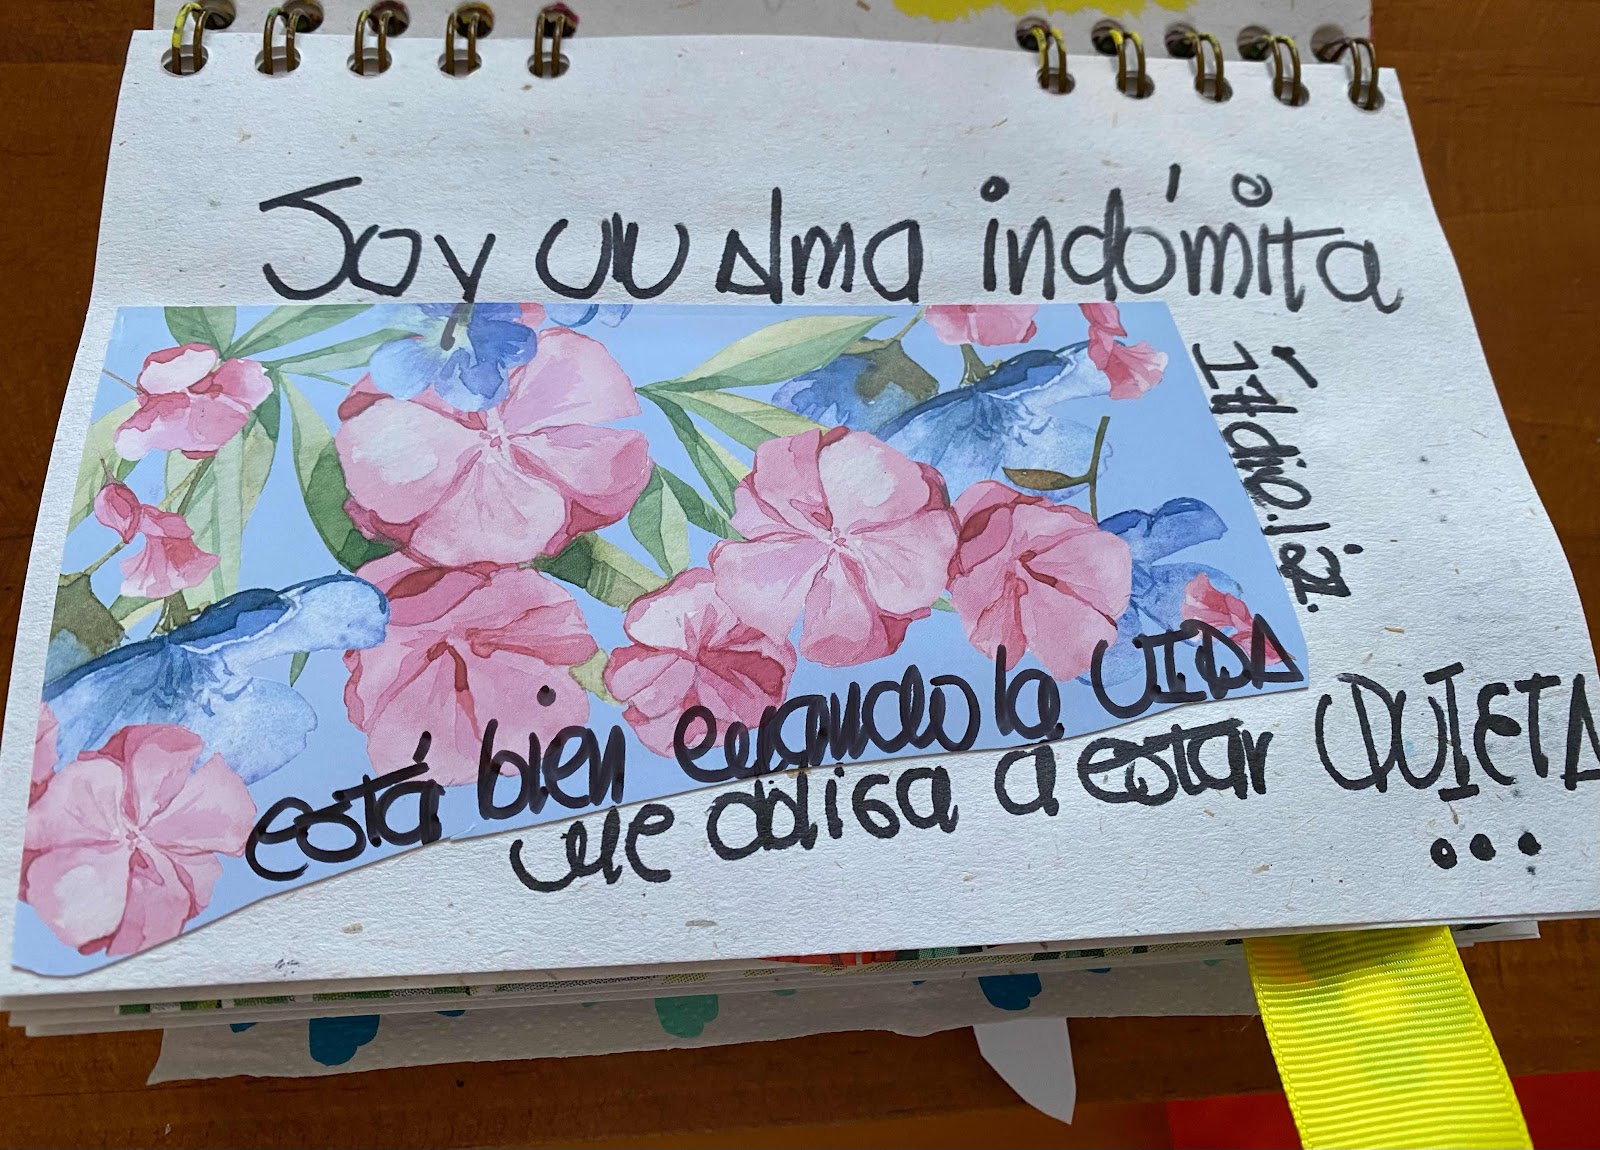 Soy un Alma indómita
está bien cuando la VIDA
me obliga a estar QUIETA
...